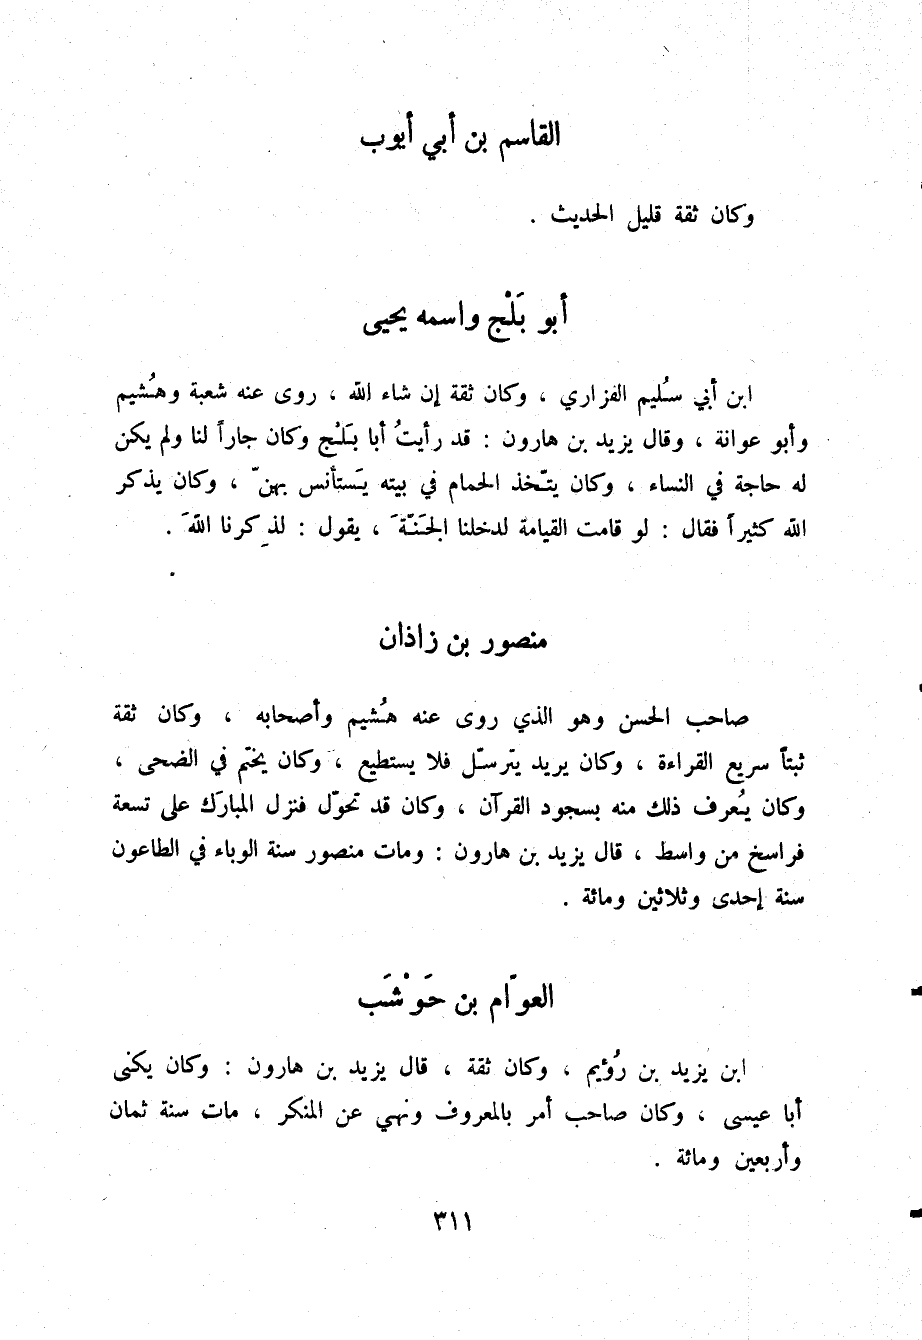 القاسم بن أبي أيوب
وكان ثقة قليل الحديث .
أبو بَلْج واسمه يحيى
ابن أبي سُليم الفزاري ، وكان ثقة إن شاء الله ، روى عنه شعبة وهُشيم
وأبو عوانة ، وقال يزيد بن هارون : قد رأيتُ أبا بَلْج وكان جاراً لنا ولم يكن
له حاجة في النساء ، وكان يتّخذ الحمام في بيته يَستأنس بهنّ ، وكان يذكر
الله كثيراً فقال : لو قامت القيامة لدخلنا الجَنّةَ ، يقول : لذِكرنا اللهَ .
منصور بن زاذان
صاحب الحسن وهو الذي روى عنه هُشيم وأصحابه ، وكان ثقة
ثبتاً سريع القراءة ، وكان يريد يترسّل فلا يستطيع ، وكان يختم في الضحى ،
وكان يُعرف ذلك منه بسجود القرآن ، وكان قد تحوّل فنزل المبارَك على تسعة
فراسخ من واسط ، قال يزيد بن هارون : ومات منصور سنة الوباء في الطاعون
سنة إحدى وثلاثين ومائة .
العوّام بن حَوْشَب
ابن يزيد بن رُؤيم ، وكان ثقة ، قال يزيد بن هارون : وكان يكنى
أبا عيسى ، وكان صاحب أمر بالمعروف ونهي عن المنكر ، مات سنة ثمان
وأربعين ومائة .
٣١١